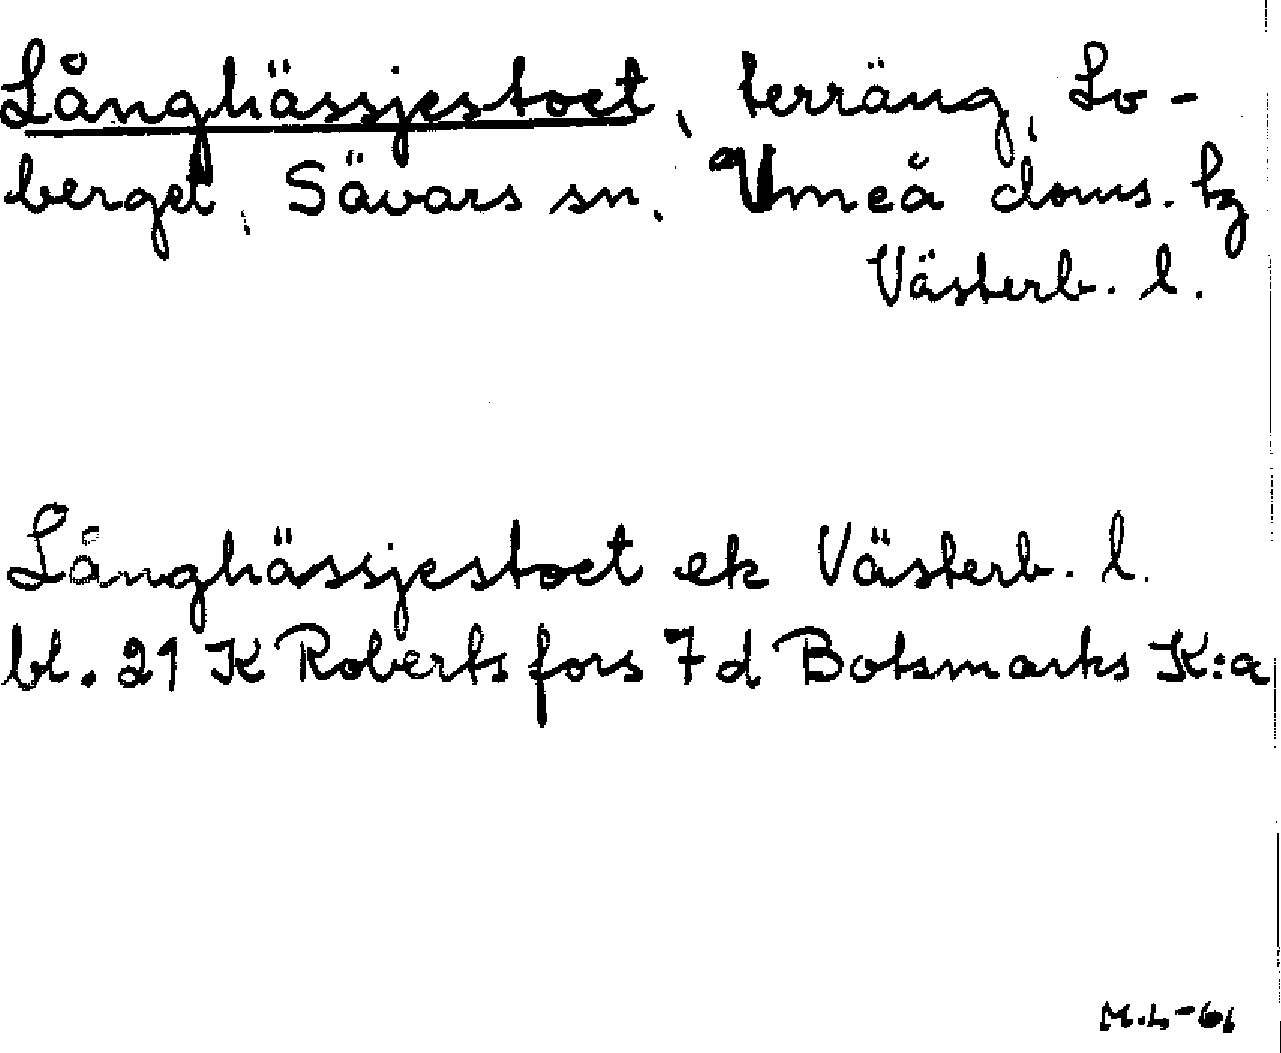 Långhässjestoet, terräng, Lo-
berget, Sävars sn, Umeå doms. tg
Västerb. l.
Långhässjestoet ek Västerb. l.
bl. 21 K Robertsfors 7 d Botsmarks K:a
M.L-61